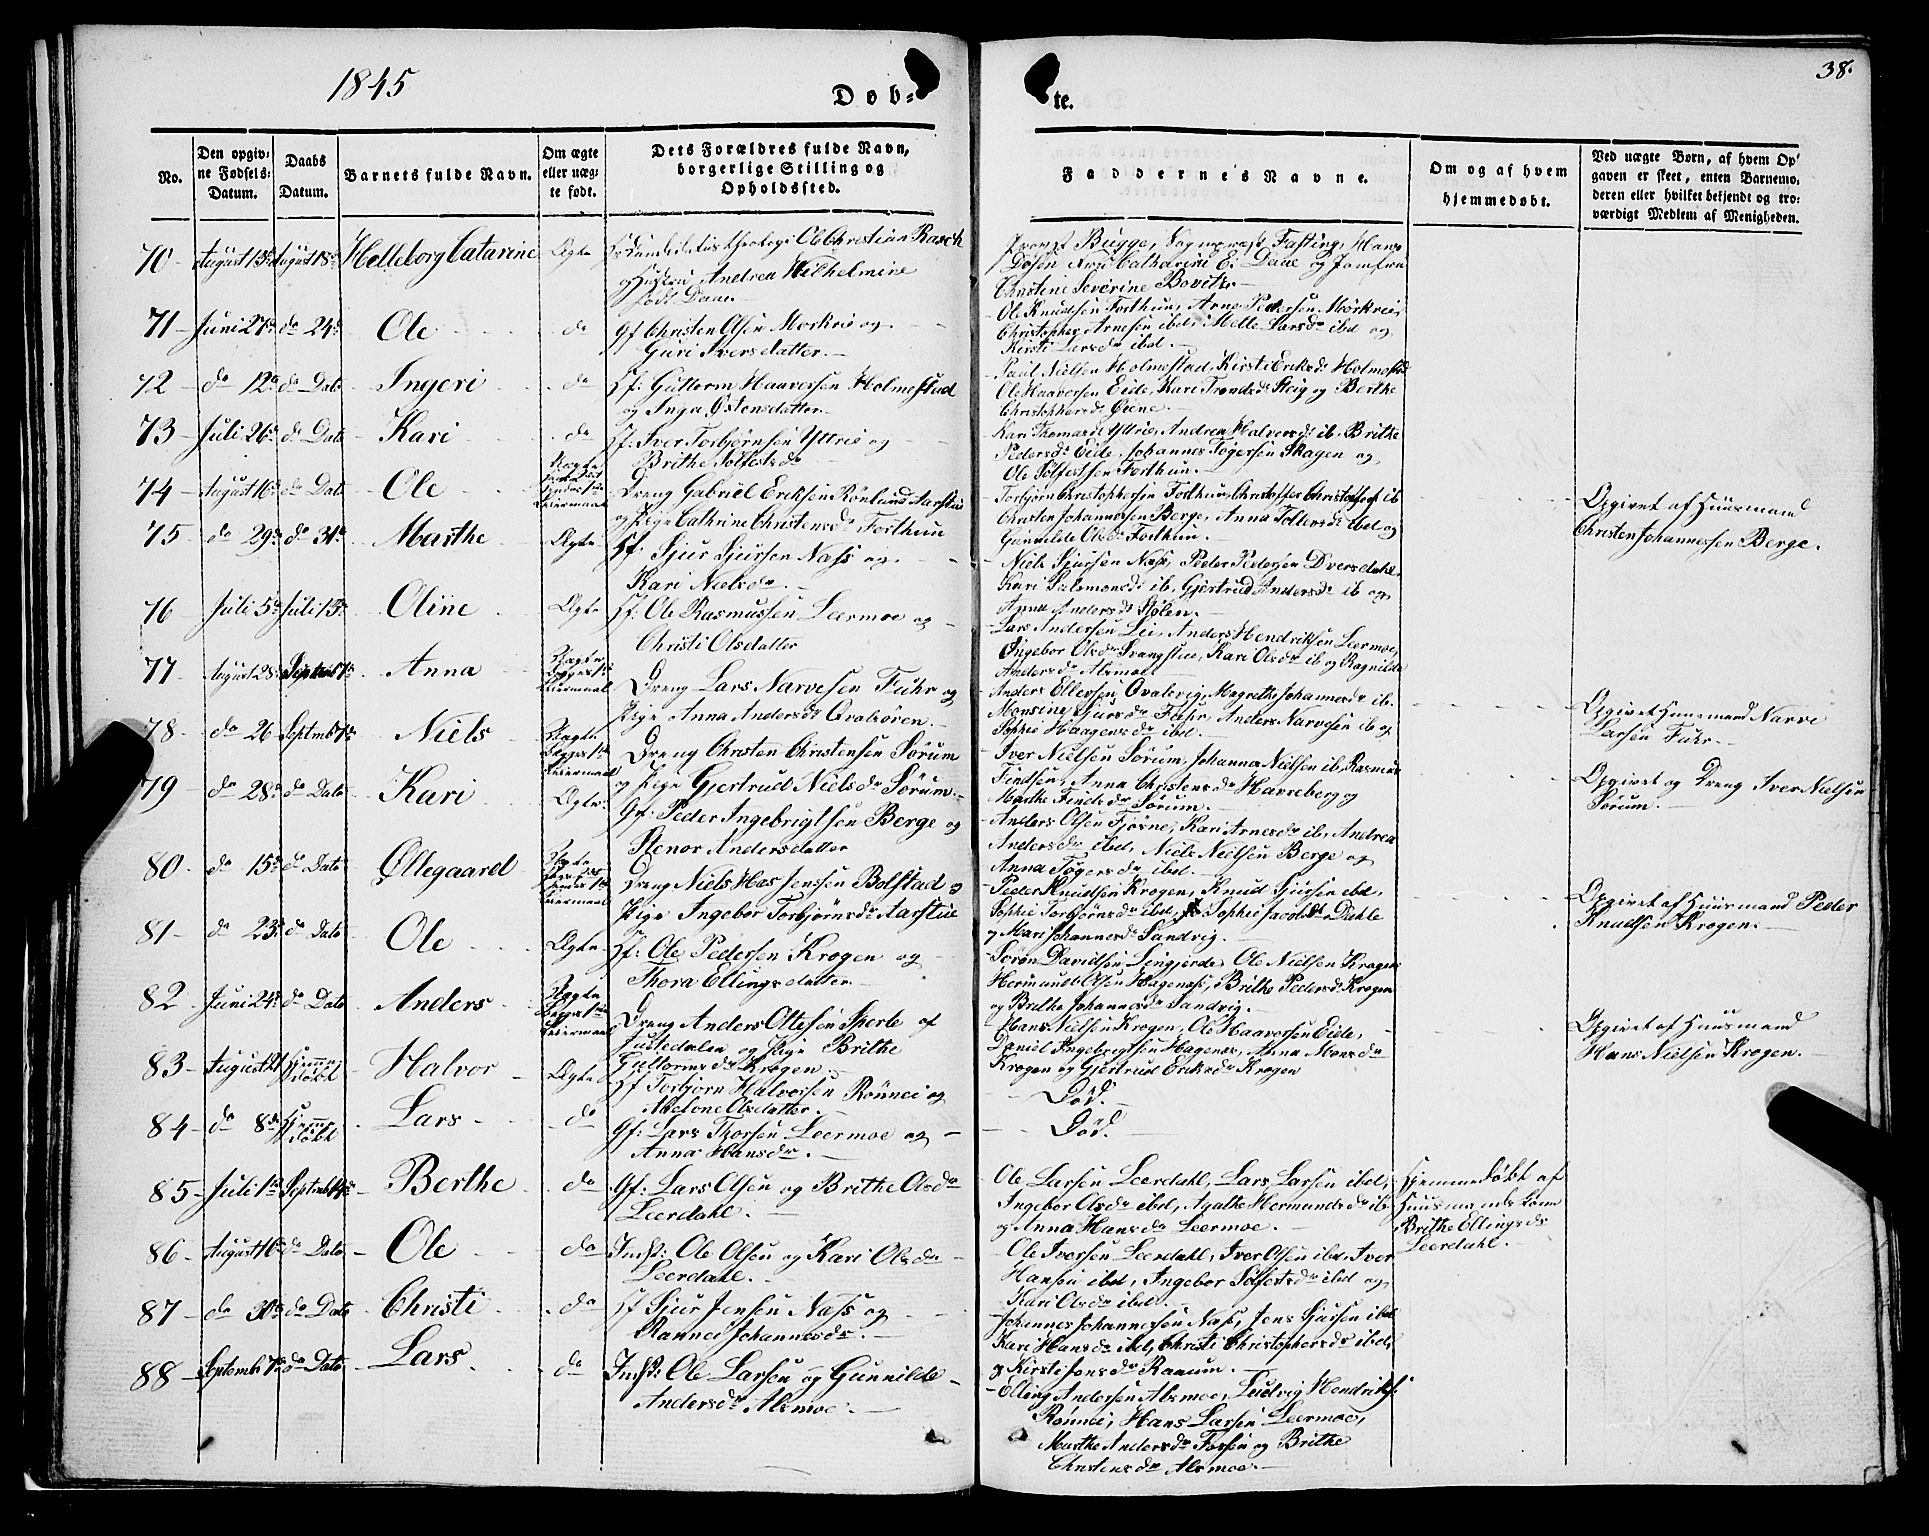 1845
Döb-
te.
38.
No.
Den opgiv-
ne Fødsels-
Datum.
Daabs
Datum.
Barnets fulde Navn.
Om ægte
eller uæg-
te født.
Dets Forældres fulde Navn,
borgerlige Stilling og
Opholdssted.
Faddernes Navne.
Om og af hvem
hjemmedøbt.
Ved uægte Børn, af hvem Op-
gaven er skeet, enten Barnemo-
deren eller hvilket bekjendt og tro-
værdigt Medlem af Menigheden.
70 August 13de August 18de Helleborg Catarine Ægte Candidatus theologi Ole Christian Rasch
og Hustru Andrea Wilhelmine
født Daae
Provst Bugge, Sogneprest Fasting, Hans
Døsen Frue Catharine E. Daae og Jomfru
Christine Severine Bovitz
71 Juni 27de do 24de Ole do Gf Christen Olsen Morkrie og
Guri Iversdatter.
Ole Knudsen Forthun, Arne Pedersen Mørkrie,
Christopher Arnesen ibd, Mette Larsdr ibd og
Kirsti Larsdr ibd.
72 do 12te do Dato Ingeri do Hf: Guttorm Haaversen Holmestad
og Inga Ostensdatter
Paul Nielsen Holmestad, Kirsti Eriksdr Holmestad
Ole Haaversen Eide, Kari Trondsdr Steig og Berthe
Christophersdr Øiene.
73 Juli 26de do Dato Kari do Hf: Iver Torbjørnsen Yttrie og
Brithe Sølfestsdr
Kari Thomasdr Yttrie, Andrea Halversdr ib, Brithe
Pedersdr Eide, Johannes Togersen Skagen og
Ole Sølfestsen Forthun.
74 August 16de do Dato Ole Uægte
Leiermaal
Dreng Gabriel Eriksen Rönlund Aarstue
og Pige Cathrine Christensdr Forthun
Torbjørn Christophersen Forthun, Christopher Christophersen ib
Christen Johannessen Berge, Anna Tollersdr ibd og
Gunilde Olsdr Forthun.
Opgivet af Huusmand
Christen Johannessen Berge.
75 do 29de do 31te Marthe Ægte Hf: Sjur Sjursen Næss og
Kari Nielsdr
Niels Sjursen Næss, Peder Pedersen Dversdahl
Kari Salomonsdr ib, Gjertrud Andersdr ib og
Anna Andersdr Stølen.
76 Juli 5te Juli 13de Oline Ægte Hf: Ole Rasmussen Leermoe og
Christi Olsdatter
Lars Andersen Lie, Anders Hendriksen Leermoe
Ingebor Olsdr Svangstue, Kari Olsdr ib og Ragnilde
Andersdr Alsmoe
77 August 28de Septemb 7de Anna Uægte
Begges 1te
Leiermaal
Dreng Lars Narvesen Fuhr og
Pige Anna Andersdr Qvalsøren.
Anders Ellefsen Qvalevig, Magrethe Johannesdr ib.
Monsine Sjursdr Fuhr, Anders Narvesen ib og
Sophie Haagensdr ibd.
Opgivet Huusmand Narve
Larsen Fuhr.
78 do 26 Septemb 7de Niels Uægte
Begges 1te
Leiermaal
Dreng Christen Christensen Sørum
og Pige Gjertrud Nielsdr Sørum.
Iver Nielsen Sørum, Johannes Nielsen ib, Rasmus
Findsen, Anna Christensdr Havreberg og
Marthe Findsdr Sørum.
Opgivet og Dreng Iver Nielsen
Sørum.
79 do 28de do Dato Kari Ægte Gf: Peder Ingebrigtsen Berge og
Elenor Andersdatter
Anders Olsen Fjøsne, Kari Arnesdr ib, Andrea
Andersdr ibd, Niels Nielsen Berge og
Anna Togersdr ibd.
80 do 15de do Dato Øllegaard Uægte
Leiermaal
Dreng Niels Has Jensen Bolstad og
Pige Ingebor Torbjørnsdr Aarstue
Peder Knudsen Krogen, Knud Sjursen ibd,
Sophie Torbjørnsdr ibd, Sophie Jacobsdr Dahle
og Mari Johannesdr Sandvig.
Opgivet af Huusmand Peder
Knudsen Krogen.
81 do 23de do Dato Ole Ægte Hf: Ole Pedersen Krogen og
Thora Ellingsdatter
Søren Davidsen Lingjerde, Ole Nielsen Krogen
Hermund Olsen Hagenæs, Brithe Pedersdr Krogen
og Brithe Johannesdr Sandvig.
82 Juni 24de do Dato Anders Uægte
Begges 1te
Leiermaal
Dreng Anders Ottesen Sperle af
Justedalen og Pige Brithe
Guttormsdr Krogen
Hans Nielsen Krogen, Ole Haaversen Eide,
Daniel Ingebrigtsen Hagenæs, Anna Monsdr
Krogen og Gjertrud Eriksdr Krogen
Opgivet af Huusmand
Hans Nielsen Krogen.
83 August 21 Hjemme
döbt Halvor Ægte Hf Torbjørn Halvorsen Rönnei og
Abelone Olsdatter.
Död.
84 do 8de Hjemme
döbt Lars do Gf: Lars Thorsen Leermoe og
Anna Hansdr.
Död.
85 Juli 1te Septemb 14de Berthe do Gf: Lars Olsen og Brithe Olsdr
Leerdahl.
Ole Larsen Leerdahl, Lars Larsen ibd,
Ingebor Olsdr ibd, Agathe Hermundsdr ib
og Anna Hansdr Leermoe.
Hjemmedöbt af
Huusmands Kone
Brithe Ellingsdr
Leerdahl.
86 August 16de do Dato Ole do Indst: Ole Olsen og Kari Olsdr
Leerdahl.
Ole Iversen Leerdahl, Iver Olsen ibd, Iver
Hansen ibd, Ingebor Sølfestsdr ibd og
Kari Olsdr ibd.
87 do 30de do Dato Christi do Hf Sjur Jensen Næss og
Rannei Johannesdr.
Johannes Johannessen Næss, Jens Sjursen ibd
Kari Hansdr ibd, Christi Christophersdr ibd,
og Kirsti Jensdr Ranum.
88 Septemb 7de do Dato Lars do Indst: Ole Larsen og Gunnilde
Andersdr Alsmoe.
Elling Andersen Alsmoe, Ludvig Hendriks:
Rönnei, Hans Larsen Leermoe,
Marthe Andersdr Forsen og Brithe
Christensdr Alsmoe.